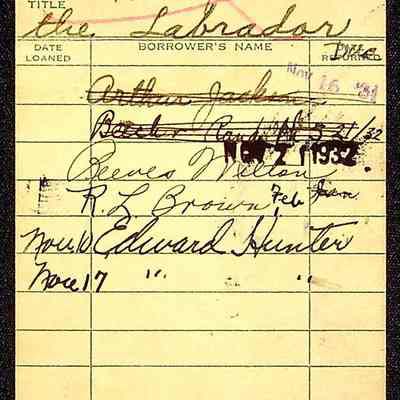 TITLE
the Labrador
DATE LOANED BORROWER'S NAME DATE RETURNED
Dec
Nov 16 '31
Arthur Jackson
3 21/32
NOV 21 1932
Reeves Wilton
R L Brown Feb Jan
Nov 10 Edward Hunter
Nove 17 " "